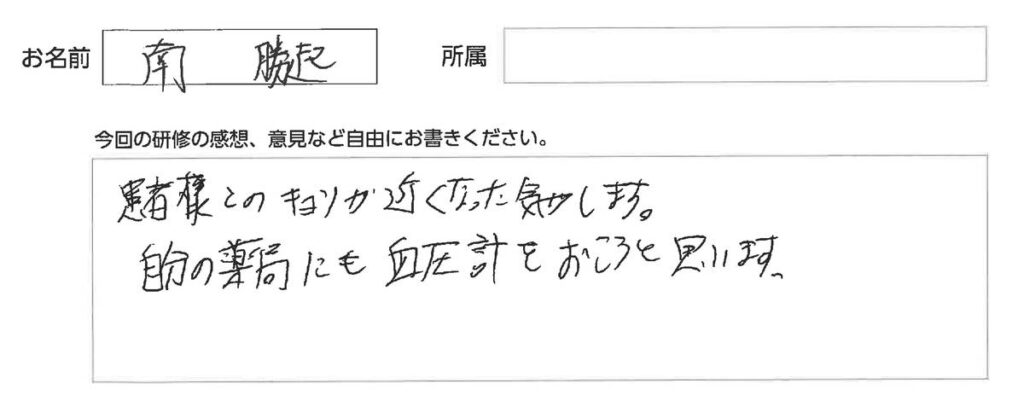 お名前 南 勝起 所属
今回の研修の感想、意見など自由にお書きください。
患者様とのキョリが近くなった気がします。
自分の薬局にも血圧計をおこうと思います。